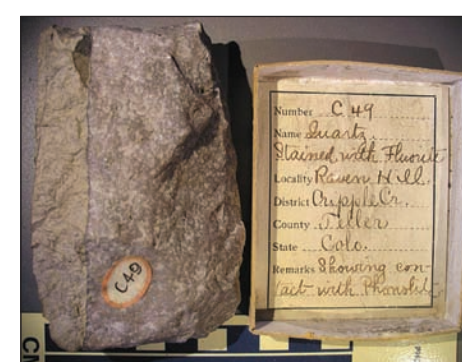 Number C 49
Name Quartz.
Stained with Fluorite
Locality Raven Hill.
District Cripple Cr.
County Teller
State Colo.
Remarks Showing con-
tact with Phonolite
C49
CM